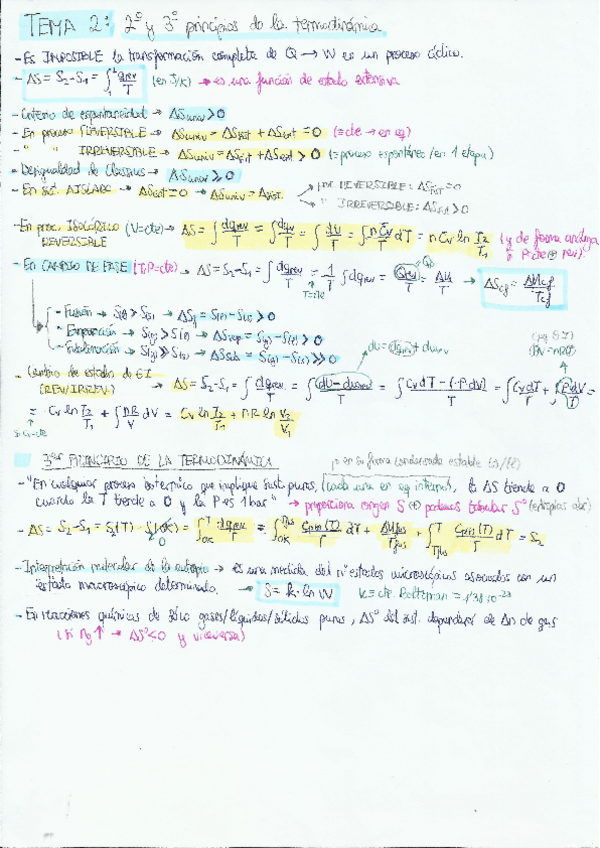 TEMA 2: 2º y 3º principios de la termodinámica
- Es IMPOSIBLE la transformación completa de Q → W en un proceso cíclico.
- ΔS = S₂ - S₁ = ∫₁² dqrev/T (en J/K) → es una función de estado extensiva
- Criterio de espontaneidad → ΔSuniv > 0
- En proceso REVERSIBLE → ΔSuniv = ΔSsist + ΔSext = 0 (=cte → en eq)
- " " IRREVERSIBLE → ΔSuniv = ΔSsist + ΔSext > 0 (= proceso espontáneo/en 1 etapa)
- Desigualdad de Clausius → ΔSuniv ≥ 0
- En sist. AISLADO → ΔSext = 0 → ΔSuniv = ΔSsist. REVERSIBLE: ΔSsist = 0
" IRREVERSIBLE: ΔSsist > 0
- En proc. ISOCÓRICO (V=cte) → ΔS = ∫ dqrev/T = ∫ dqv/T = ∫ dU/T = ∫ n Cv/T dT = n Cv ln T₂/T₁ (y de forma análoga
REVERSIBLE P=cte
- En CAMBIO DE FASE (T,P=cte) → ΔS = S₂ - S₁ = ∫ dqrev/T = 1/T ∫ dqrev = Qrev/T = → ΔScf = ΔHcf/Tcf
T=cte
- Fusión → S(l) > S(s) → ΔSf = S(l) - S(s) > 0
- Evaporación → S(g) > S(l) → ΔSvap = S(g) - S(l) > 0
- Sublimación → S(g) ≫ S(s) → ΔSsub = S(g) - S(s) ≫ 0
dU = dqrev + dwrev
(PV = nRT)
- Cambio de estado de GI
(REV/IRREV) → ΔS = S₂ - S₁ = ∫ dqrev/T = ∫ (dU - dwrev)/T = ∫ (Cv dT - (-P dV))/T = ∫ Cv dT/T + ∫ P dV/T =
= Cv ln T₂/T₁ + ∫ nR/V dV = Cv ln T₂/T₁ + nR ln V₂/V₁
si Cv=cte
3er PRINCIPIO DE LA TERMODINÁMICA
en su forma condensada estable (s/l)
- "En cualquier proceso isotérmico que implique sust. puras, (cada una en eq interno), la ΔS tiende a 0
cuando la T tiende a 0 y la P es 1 bar" → proporciona origen S → podemos tabular Sº (entropías abs)
- ΔS = S₂ - S₁ = S₂(T) - S₁(0K) = ∫0K T dqrev/T = ∫0K Tfus Cp(s)(T)/T dT + ΔHfus/Tfus + ∫Tfus T Cp(l)(T)/T dT = S₂
0
- Interpretación molecular de la entropía → es una medida del nº estados microscópicos asociados con un
estado macroscópico determinado. → S = k · ln W K = cte. Boltzman = 1'38·10⁻²³
- En reacciones químicas de sólo gases/líquidos/sólidos puros, ΔSº del sist. dependerá de Δn de gas
(si ng ↑ → ΔSº<0 y viceversa)